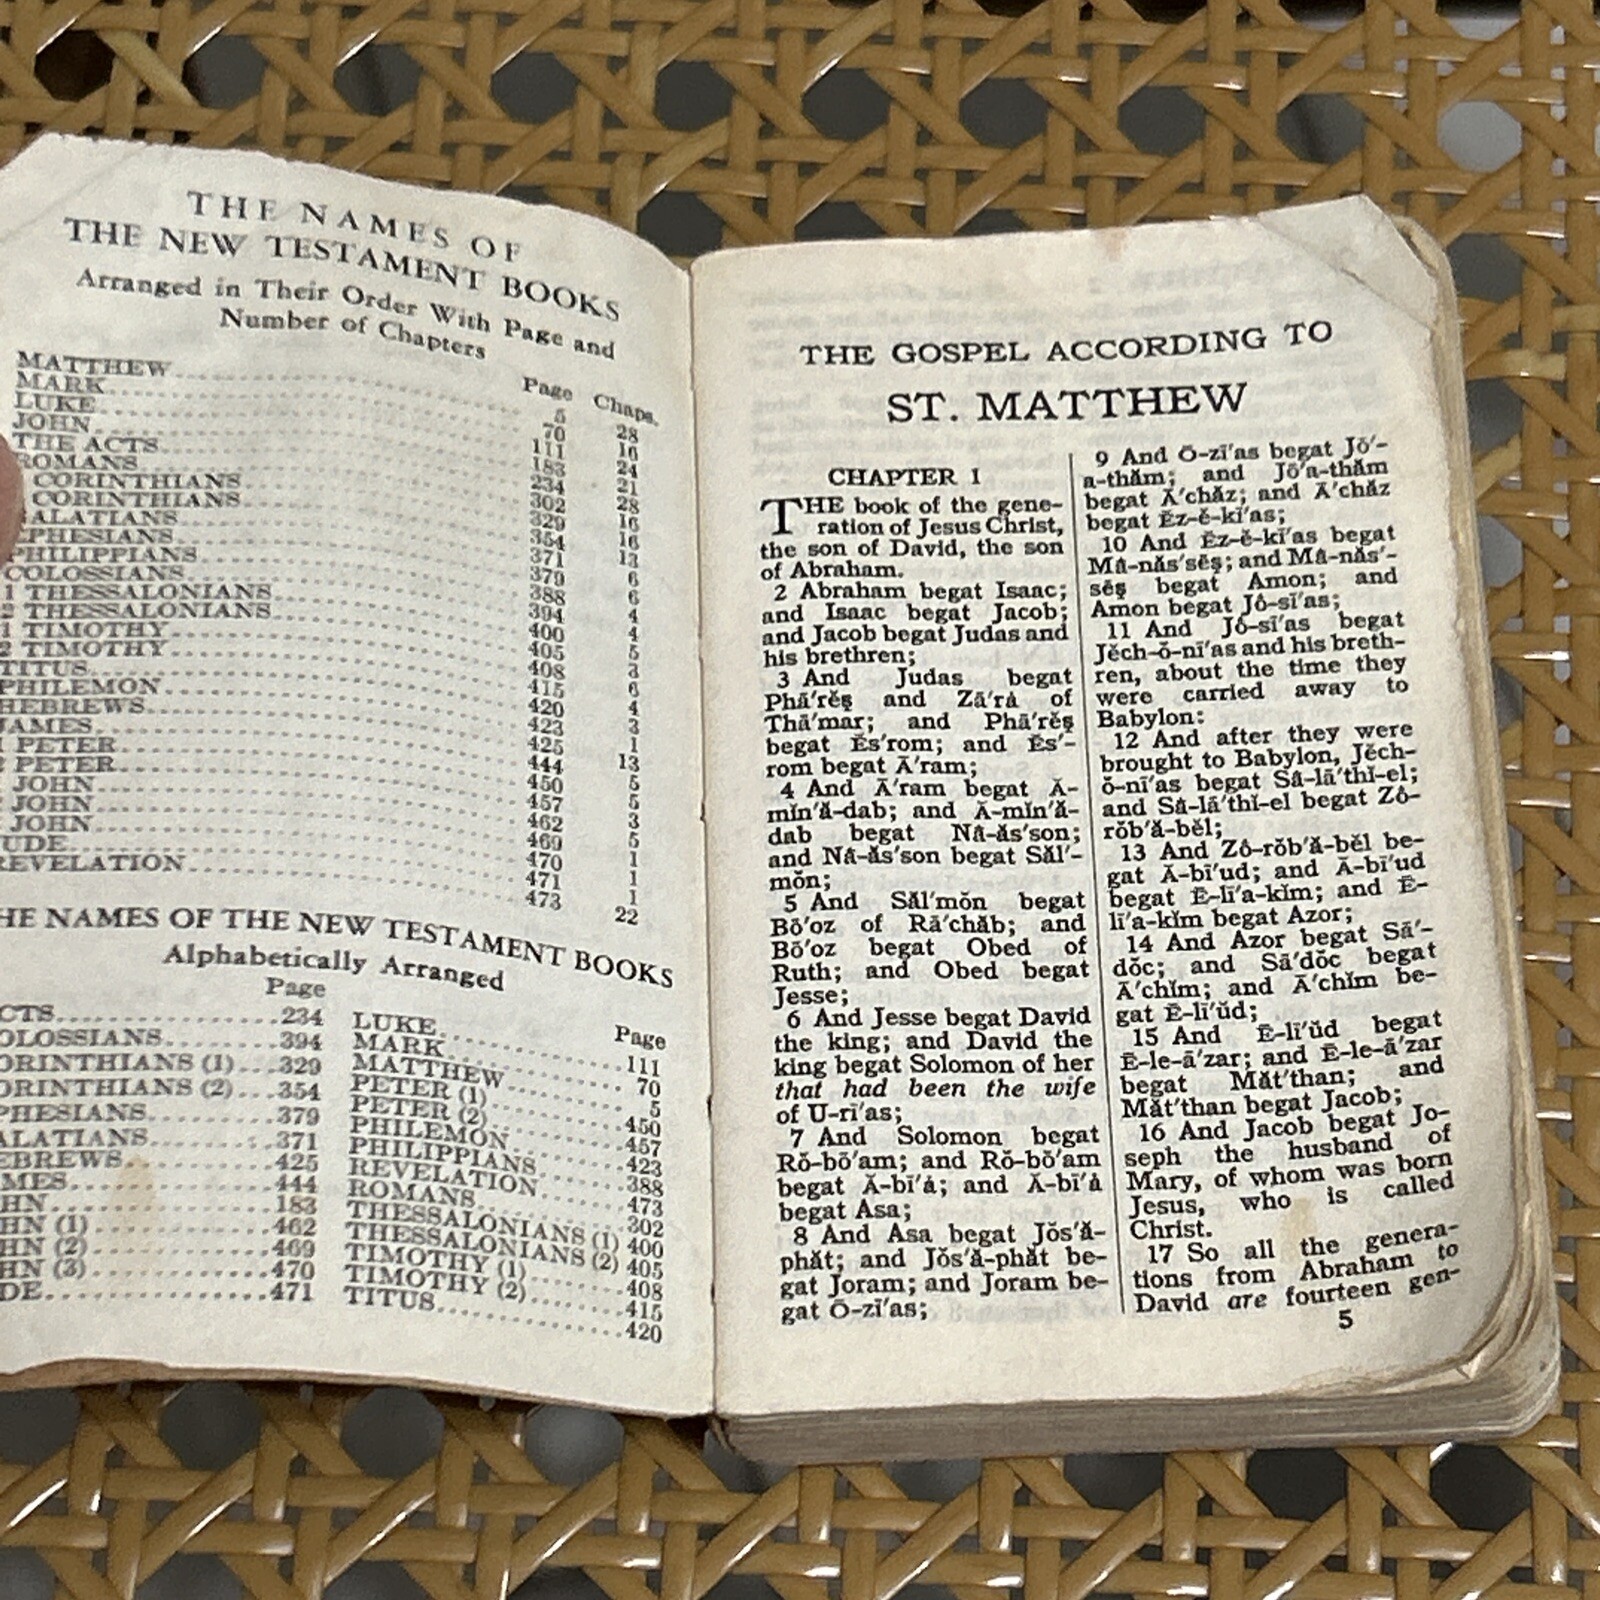 THE NAMES OF
THE NEW TESTAMENT BOOKS
Arranged in Their Order With Page and
Number of Chapters
Page Chaps.
MATTHEW 5 28
MARK 70 16
LUKE 111 24
JOHN 183 21
THE ACTS 234 28
ROMANS 302 16
CORINTHIANS 329 16
CORINTHIANS 354 13
ALATIANS 371 6
EPHESIANS 379 6
PHILIPPIANS 388 4
COLOSSIANS 394 4
1 THESSALONIANS 400 5
2 THESSALONIANS 405 3
1 TIMOTHY 408 6
2 TIMOTHY 415 4
TITUS 420 3
PHILEMON 423 1
HEBREWS 425 13
JAMES 444 5
1 PETER 450 5
2 PETER 457 3
JOHN 462 5
JOHN 469 1
JOHN 470 1
UDE 471 1
REVELATION 473 22
HE NAMES OF THE NEW TESTAMENT BOOKS
Alphabetically Arranged
Page
CTS 234
OLOSSIANS 394
ORINTHIANS (1) 329
ORINTHIANS (2) 354
PHESIANS 379
ALATIANS 371
EBREWS 425
MES 444
HN 183
HN (1) 462
HN (2) 469
HN (3) 470
DE 471
Page
LUKE 111
MARK 70
MATTHEW 5
PETER (1) 450
PETER (2) 457
PHILEMON 423
PHILIPPIANS 388
REVELATION 473
ROMANS 302
THESSALONIANS (1) 400
THESSALONIANS (2) 405
TIMOTHY (1) 408
TIMOTHY (2) 415
TITUS 420
THE GOSPEL ACCORDING TO
ST. MATTHEW
CHAPTER 1
THE book of the gene-
ration of Jesus Christ,
the son of David, the son
of Abraham.
2 Abraham begat Isaac;
and Isaac begat Jacob;
and Jacob begat Judas and
his brethren;
3 And Judas begat
Phā′rĕş and Zā′rȧ of
Thā′mar; and Phā′rĕş
begat Ĕs′rom; and Ĕs′-
rom begat Ā′ram;
4 And Ā′ram begat Ă-
mĭn′ă-dab; and Ă-mĭn′ă-
dab begat Nâ-ăs′son;
and Nâ-ăs′son begat Săl′-
mŏn;
5 And Săl′mŏn begat
Bō′oz of Rā′chăb; and
Bō′oz begat Obed of
Ruth; and Obed begat
Jesse;
6 And Jesse begat David
the king; and David the
king begat Solomon of her
that had been the wife
of U-rī′as;
7 And Solomon begat
Rŏ-bō′am; and Rŏ-bō′am
begat Ă-bī′ȧ; and Ă-bī′ȧ
begat Asa;
8 And Asa begat Jŏs′ă-
phăt; and Jŏs′ă-phăt be-
gat Joram; and Joram be-
gat Ŏ-zī′as;
9 And Ŏ-zī′as begat Jō′-
a-thăm; and Jō′a-thăm
begat Ā′chăz; and Ā′chăz
begat Ĕz-ĕ-kī′as;
10 And Ĕz-ĕ-kī′as begat
Mâ-năs′sĕş; and Mâ-năs′-
sĕş begat Amon; and
Amon begat Jô-sī′as;
11 And Jô-sī′as begat
Jĕch-ŏ-nī′as and his breth-
ren, about the time they
were carried away to
Babylon:
12 And after they were
brought to Babylon, Jĕch-
ŏ-nī′as begat Sâ-lā′thĭ-el;
and Sâ-lā′thĭ-el begat Zô-
rŏb′ă-bĕl;
13 And Zô-rŏb′ă-bĕl be-
gat Ă-bī′ud; and Ă-bī′ud
begat Ē-lī′a-kĭm; and Ē-
lī′a-kĭm begat Azor;
14 And Azor begat Sā′-
dŏc; and Sā′dŏc begat
Ā′chĭm; and Ā′chĭm be-
gat Ē-lī′ŭd;
15 And Ē-lī′ŭd begat
Ē-le-ā′zar; and Ē-le-ā′zar
begat Măt′than; and
Măt′than begat Jacob;
16 And Jacob begat Jo-
seph the husband of
Mary, of whom was born
Jesus, who is called
Christ.
17 So all the genera-
tions from Abraham to
David are fourteen gen-
5